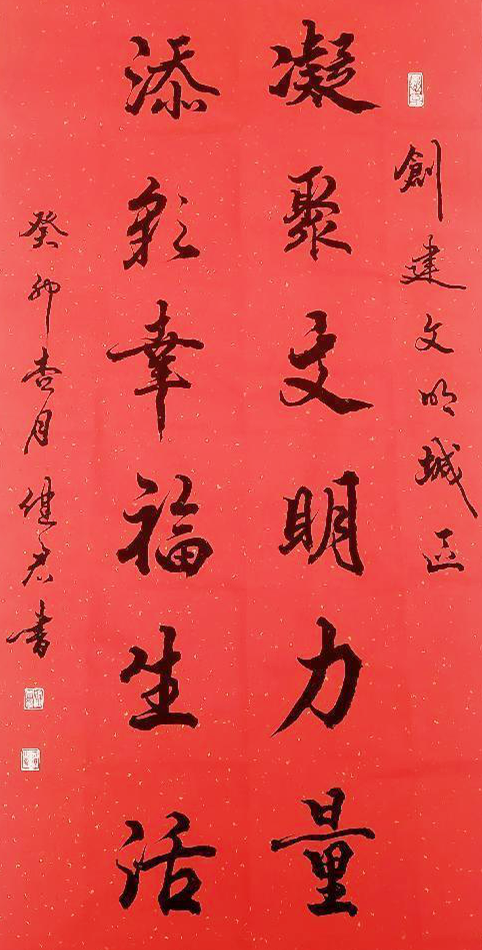 創建文明城區
凝聚文明力量
添彩幸福生活
癸卯杏月健君書